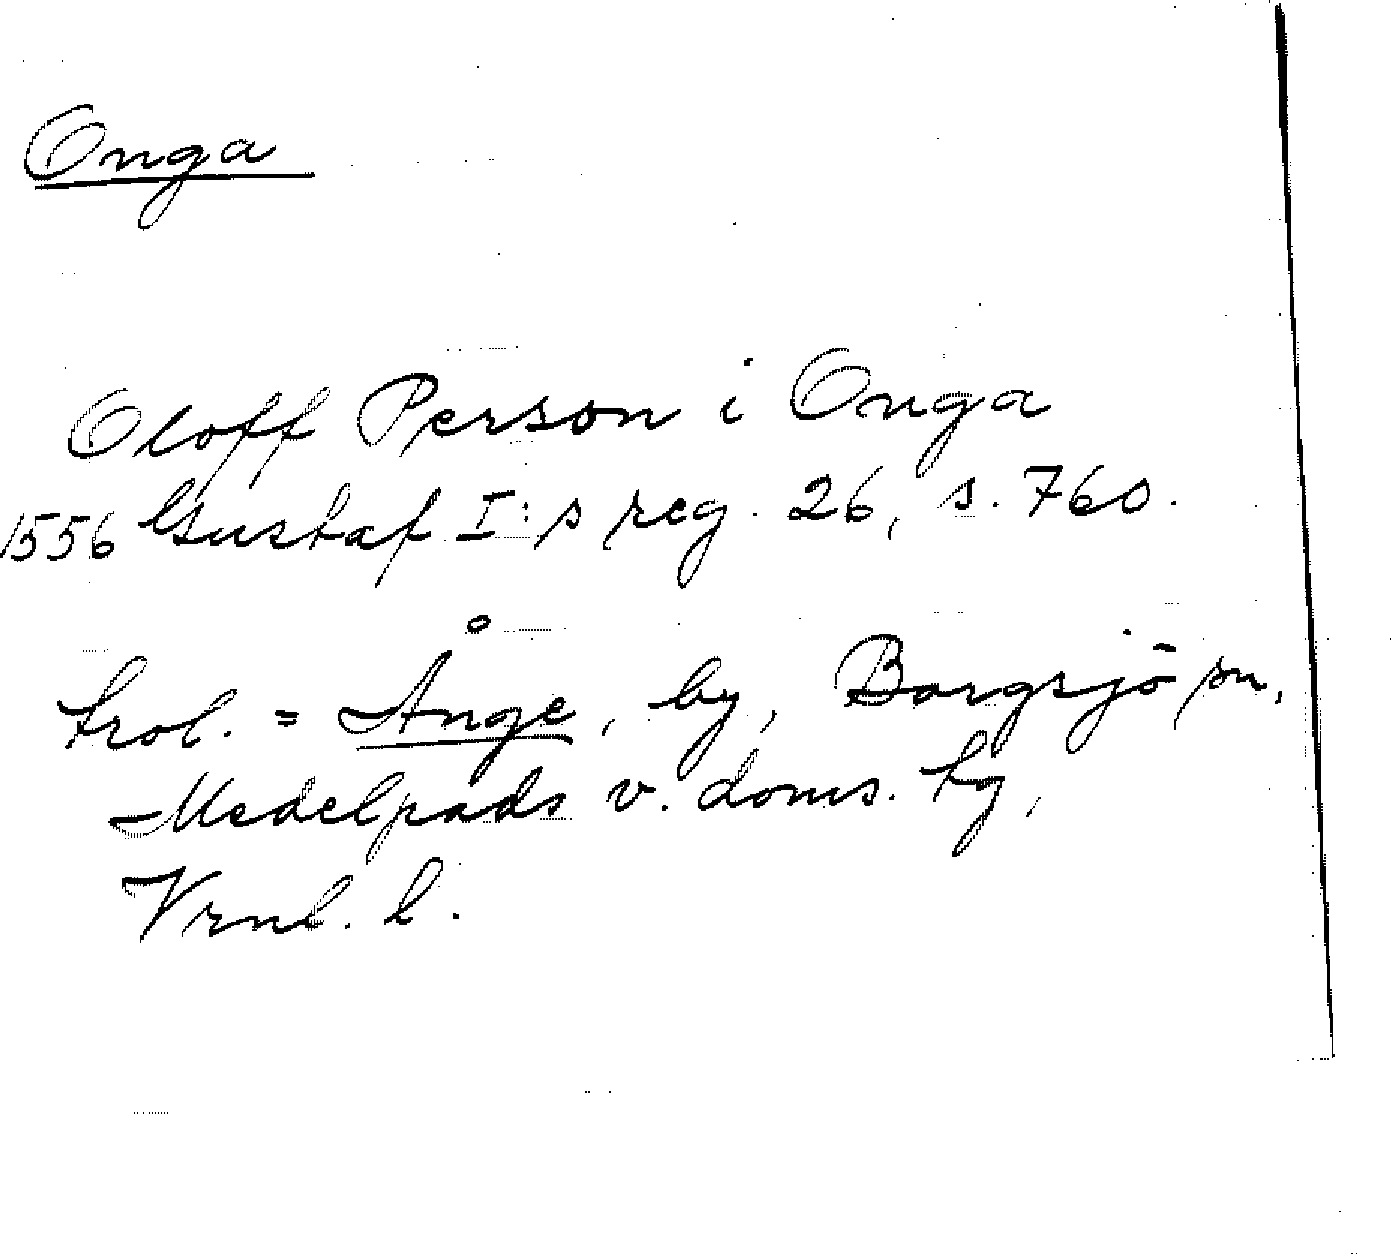 Onga
Oloff Person i Onga
1556 Gustaf I:s reg. 26, s. 760.
trol. = Ånge, by, Borgsjö sn,
Medelpads v. doms. tg,
Vrnl. l.